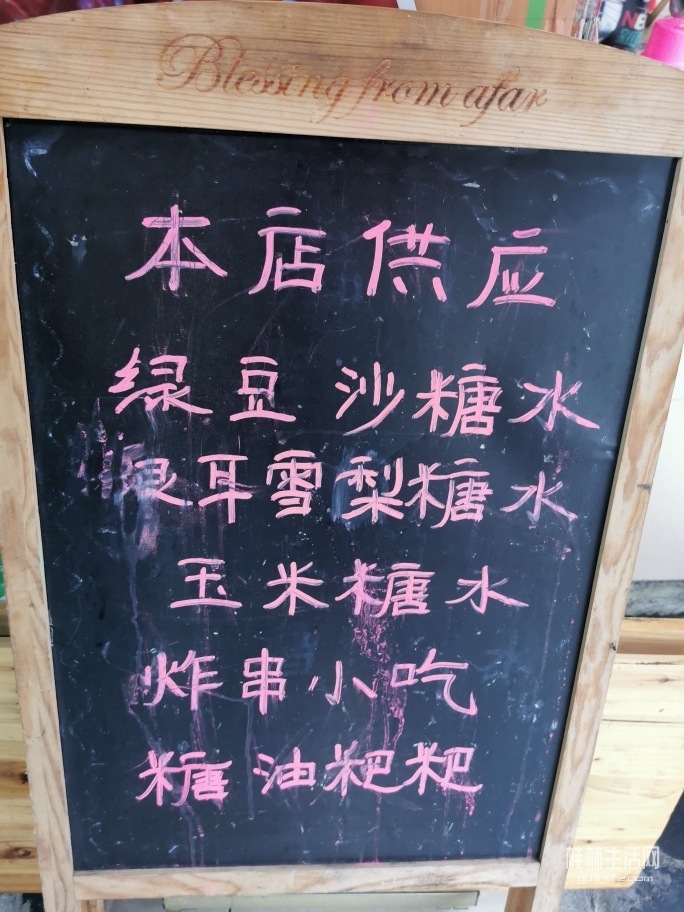 Blessing from afar
本店供应
绿豆沙糖水
银耳雪梨糖水
玉米糖水
炸串小吃
糖油粑粑
桂林生活网